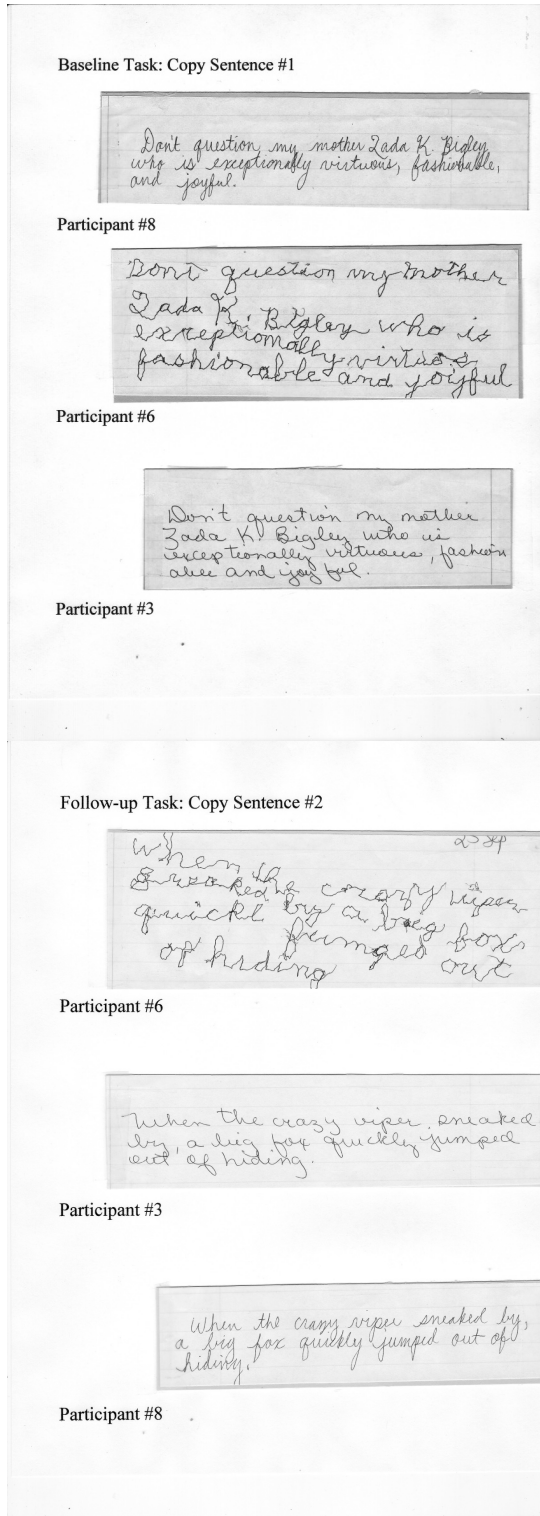 Baseline Task: Copy Sentence #1
Don't question my mother Zada K. Bigley
who is exceptionally virtuous, fashionable,
and joyful.
Participant #8
Don't question my mother
Zada K. Bigley who is
exceptionally virtuos
fashionable and joyful
Participant #6
Don't question my mother
Zada K. Bigley who is
exceptionally virtuous, fashion
able and joy ful.
Participant #3
Follow-up Task: Copy Sentence #2
When the
crazy viper
quickl by a big fox
jumped out
of hiding
Participant #6
When the crazy viper sneaked
by, a big fox quickly jumped
out of hiding.
Participant #3
When the crazy viper sneaked by,
a big fox quickly jumped out of
hiding.
Participant #8